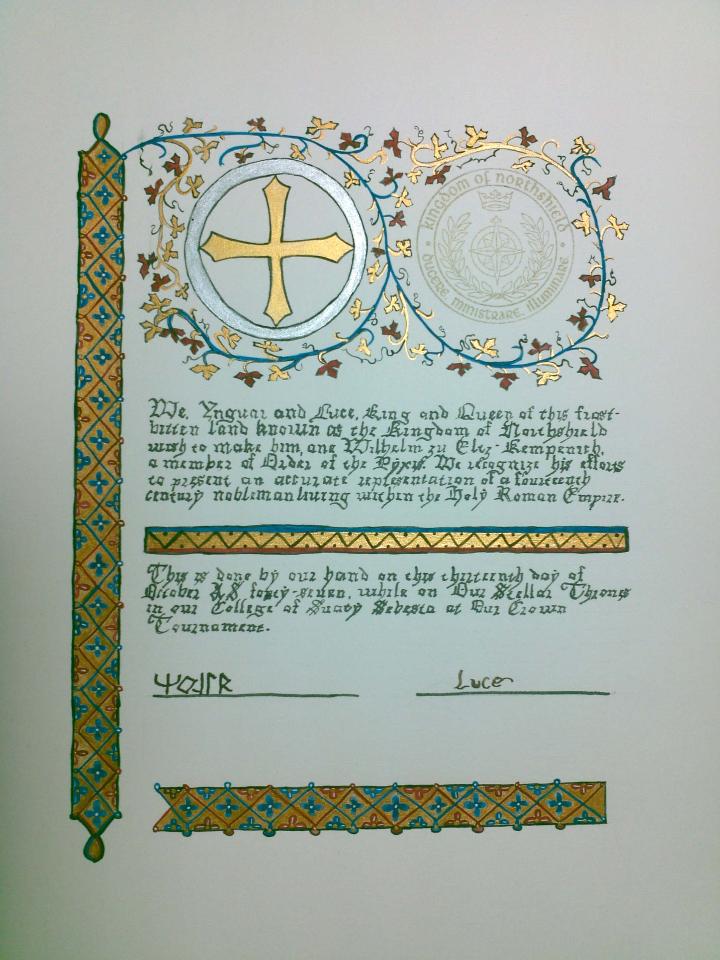 Kingdom of Northshield
Ducere, Ministrare, Illuminare
We, Yngvar and Luce, King and Queen of this frost-
bitten land known as the Kingdom of Northshield
wish to make him, one Wilhelm zu Eltz-Kempenich,
a member of Order of the Pyxis. We recognize his efforts
to present an accurate representation of a fourteenth
century nobleman living within the Holy Roman Empire.
This is done by our hand on this thirteenth day of
October AS forty-seven, while on Our Stellar Thrones
in our College of at Our Crown
Tournament.
Luce